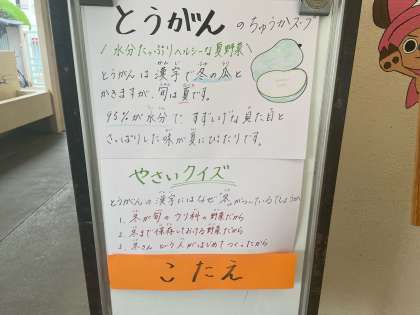 とうがん のちゅうかスープ
\ 水分たっぷりヘルシーな夏野菜 /
とうがんは漢字で冬の瓜と
かきますが、旬は夏です。
95%が水分で、すずしげな見た目と
さっぱりした味が夏にぴったりです。
やさいクイズ
とうがんの漢字にはなぜ"冬"が入っているでしょうか
1. 冬が旬のウリ科の野菜だから
2. 冬まで保存しておける野菜だから
3. 冬さんという人がはじめてつくったから
こたえ